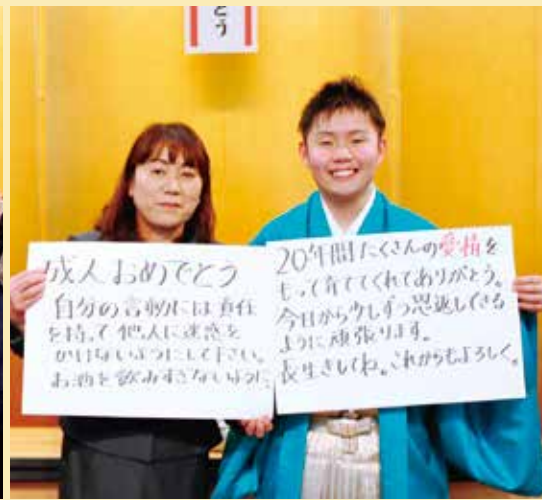 とう
成人おめでとう
自分の言動には責任
を持って他人に迷惑を
かけないようにして下さい。
お酒を飲みすぎないように
20年間たくさんの愛情を
もって育ててくれてありがとう。
今日から少しずつ恩返しできる
ように頑張ります。
長生きしてね。これからもよろしく。